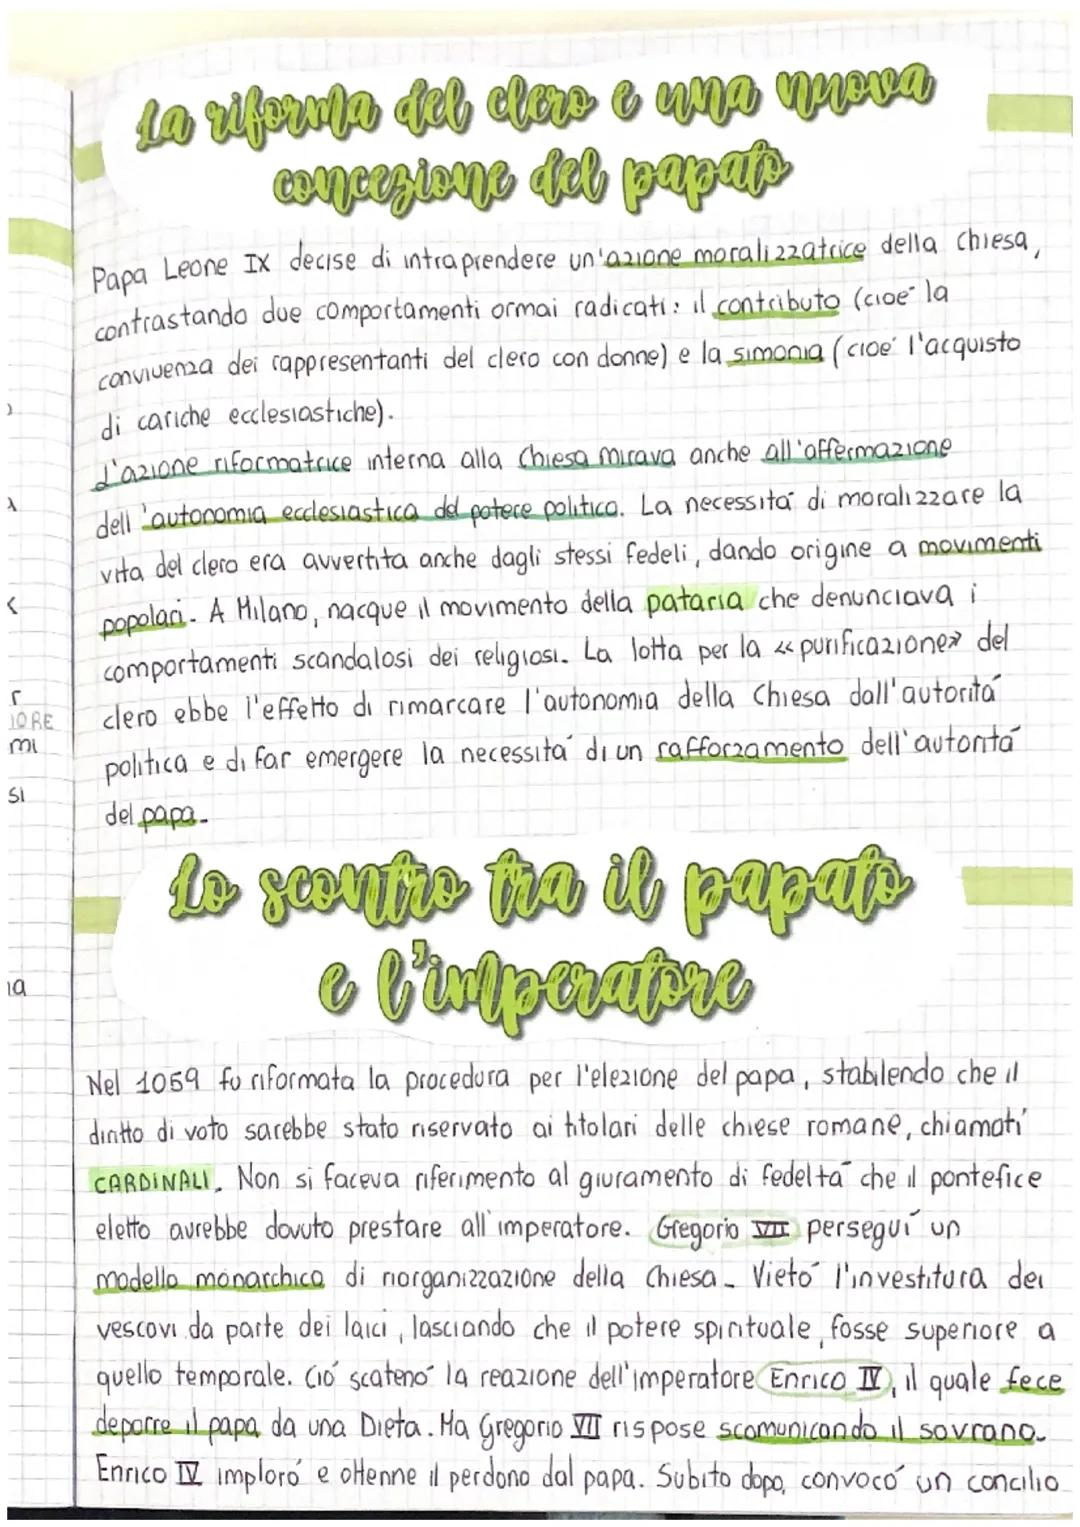 La riforma del clero e una nuova
concezione del papato
Papa Leone IX decise di intraprendere un'azione moralizzatrice della Chiesa,
contrastando due comportamenti ormai radicati: il contributo (cioè la
convivenza dei rappresentanti del clero con donne) e la simonia (cioè l'acquisto
di cariche ecclesiastiche).
L'azione riformatrice interna alla Chiesa mirava anche all'affermazione
dell'autonomia ecclesiastica del potere politico. La necessità di moralizzare la
vita del clero era avvertita anche dagli stessi fedeli, dando origine a movimenti
popolari. A Milano, nacque il movimento della pataria che denunciava i
comportamenti scandalosi dei religiosi. La lotta per la «purificazione» del
clero ebbe l'effetto di rimarcare l'autonomia della Chiesa dall'autorità
politica e di far emergere la necessità di un rafforzamento dell'autorità
del papa.
Lo scontro tra il papato
e l'imperatore
Nel 1059 fu riformata la procedura per l'elezione del papa, stabilendo che il
diritto di voto sarebbe stato riservato ai titolari delle chiese romane, chiamati
CARDINALI. Non si faceva riferimento al giuramento di fedeltà che il pontefice
eletto avrebbe dovuto prestare all'imperatore. Gregorio VII perseguì un
modello monarchico di riorganizzazione della Chiesa. Vietò l'investitura dei
vescovi da parte dei laici, lasciando che il potere spirituale fosse superiore a
quello temporale. Ciò scatenò la reazione dell'imperatore Enrico IV, il quale fece
deporre il papa da una Dieta. Ma Gregorio VII rispose scomunicando il sovrano.
Enrico IV implorò e ottenne il perdono dal papa. Subito dopo, convocò un concilio
IORE
mi
si